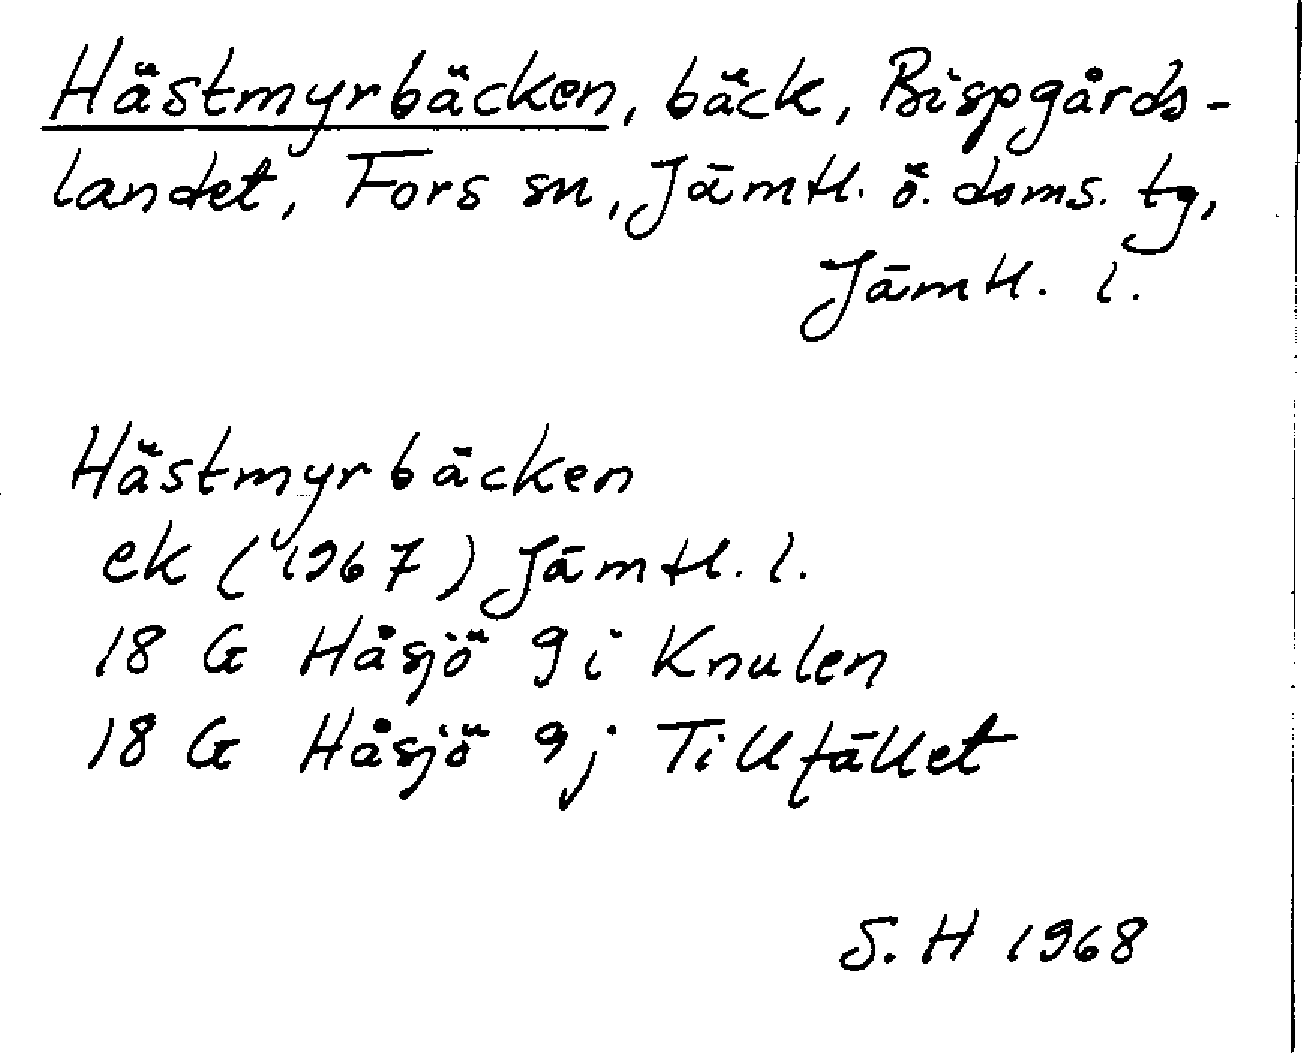 Hästmyrbäcken, bäck, Bispgårds-
landet, Fors sn, Jämtl. ö. doms. tg,
Jämtl. l.
Hästmyrbäcken
ek (1967) Jämtl. l.
18 G Håsjö 9 i Knulen
18 G Håsjö 9 j Tillfället
S. H 1968